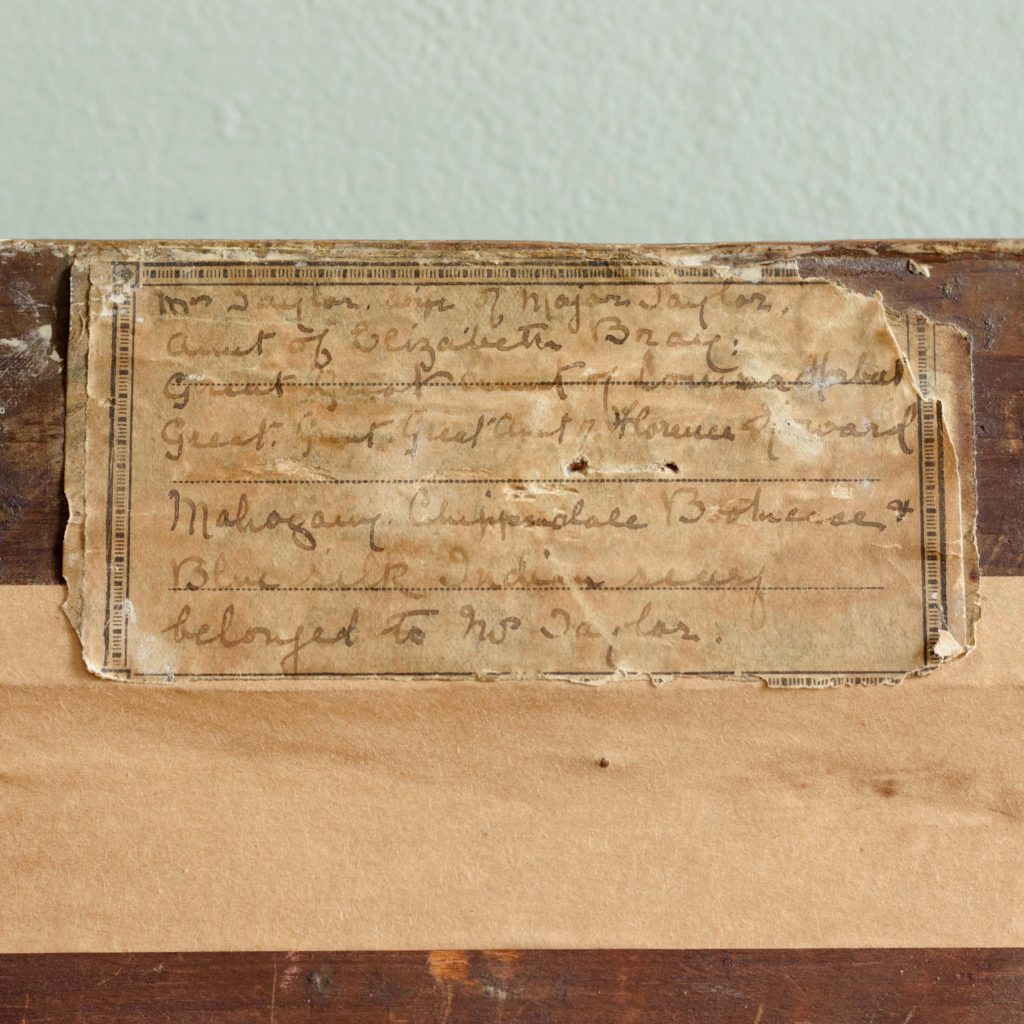 Mrs Taylor. wife of Major Taylor,
Aunt of Elizabeth Bray:
Great Great Aunt of Louisa
Great. Great. Great Aunt of Florence
Mahogany Chippendale Bookcase &
Blue silk Indian scarf
belonged to Mrs Taylor.